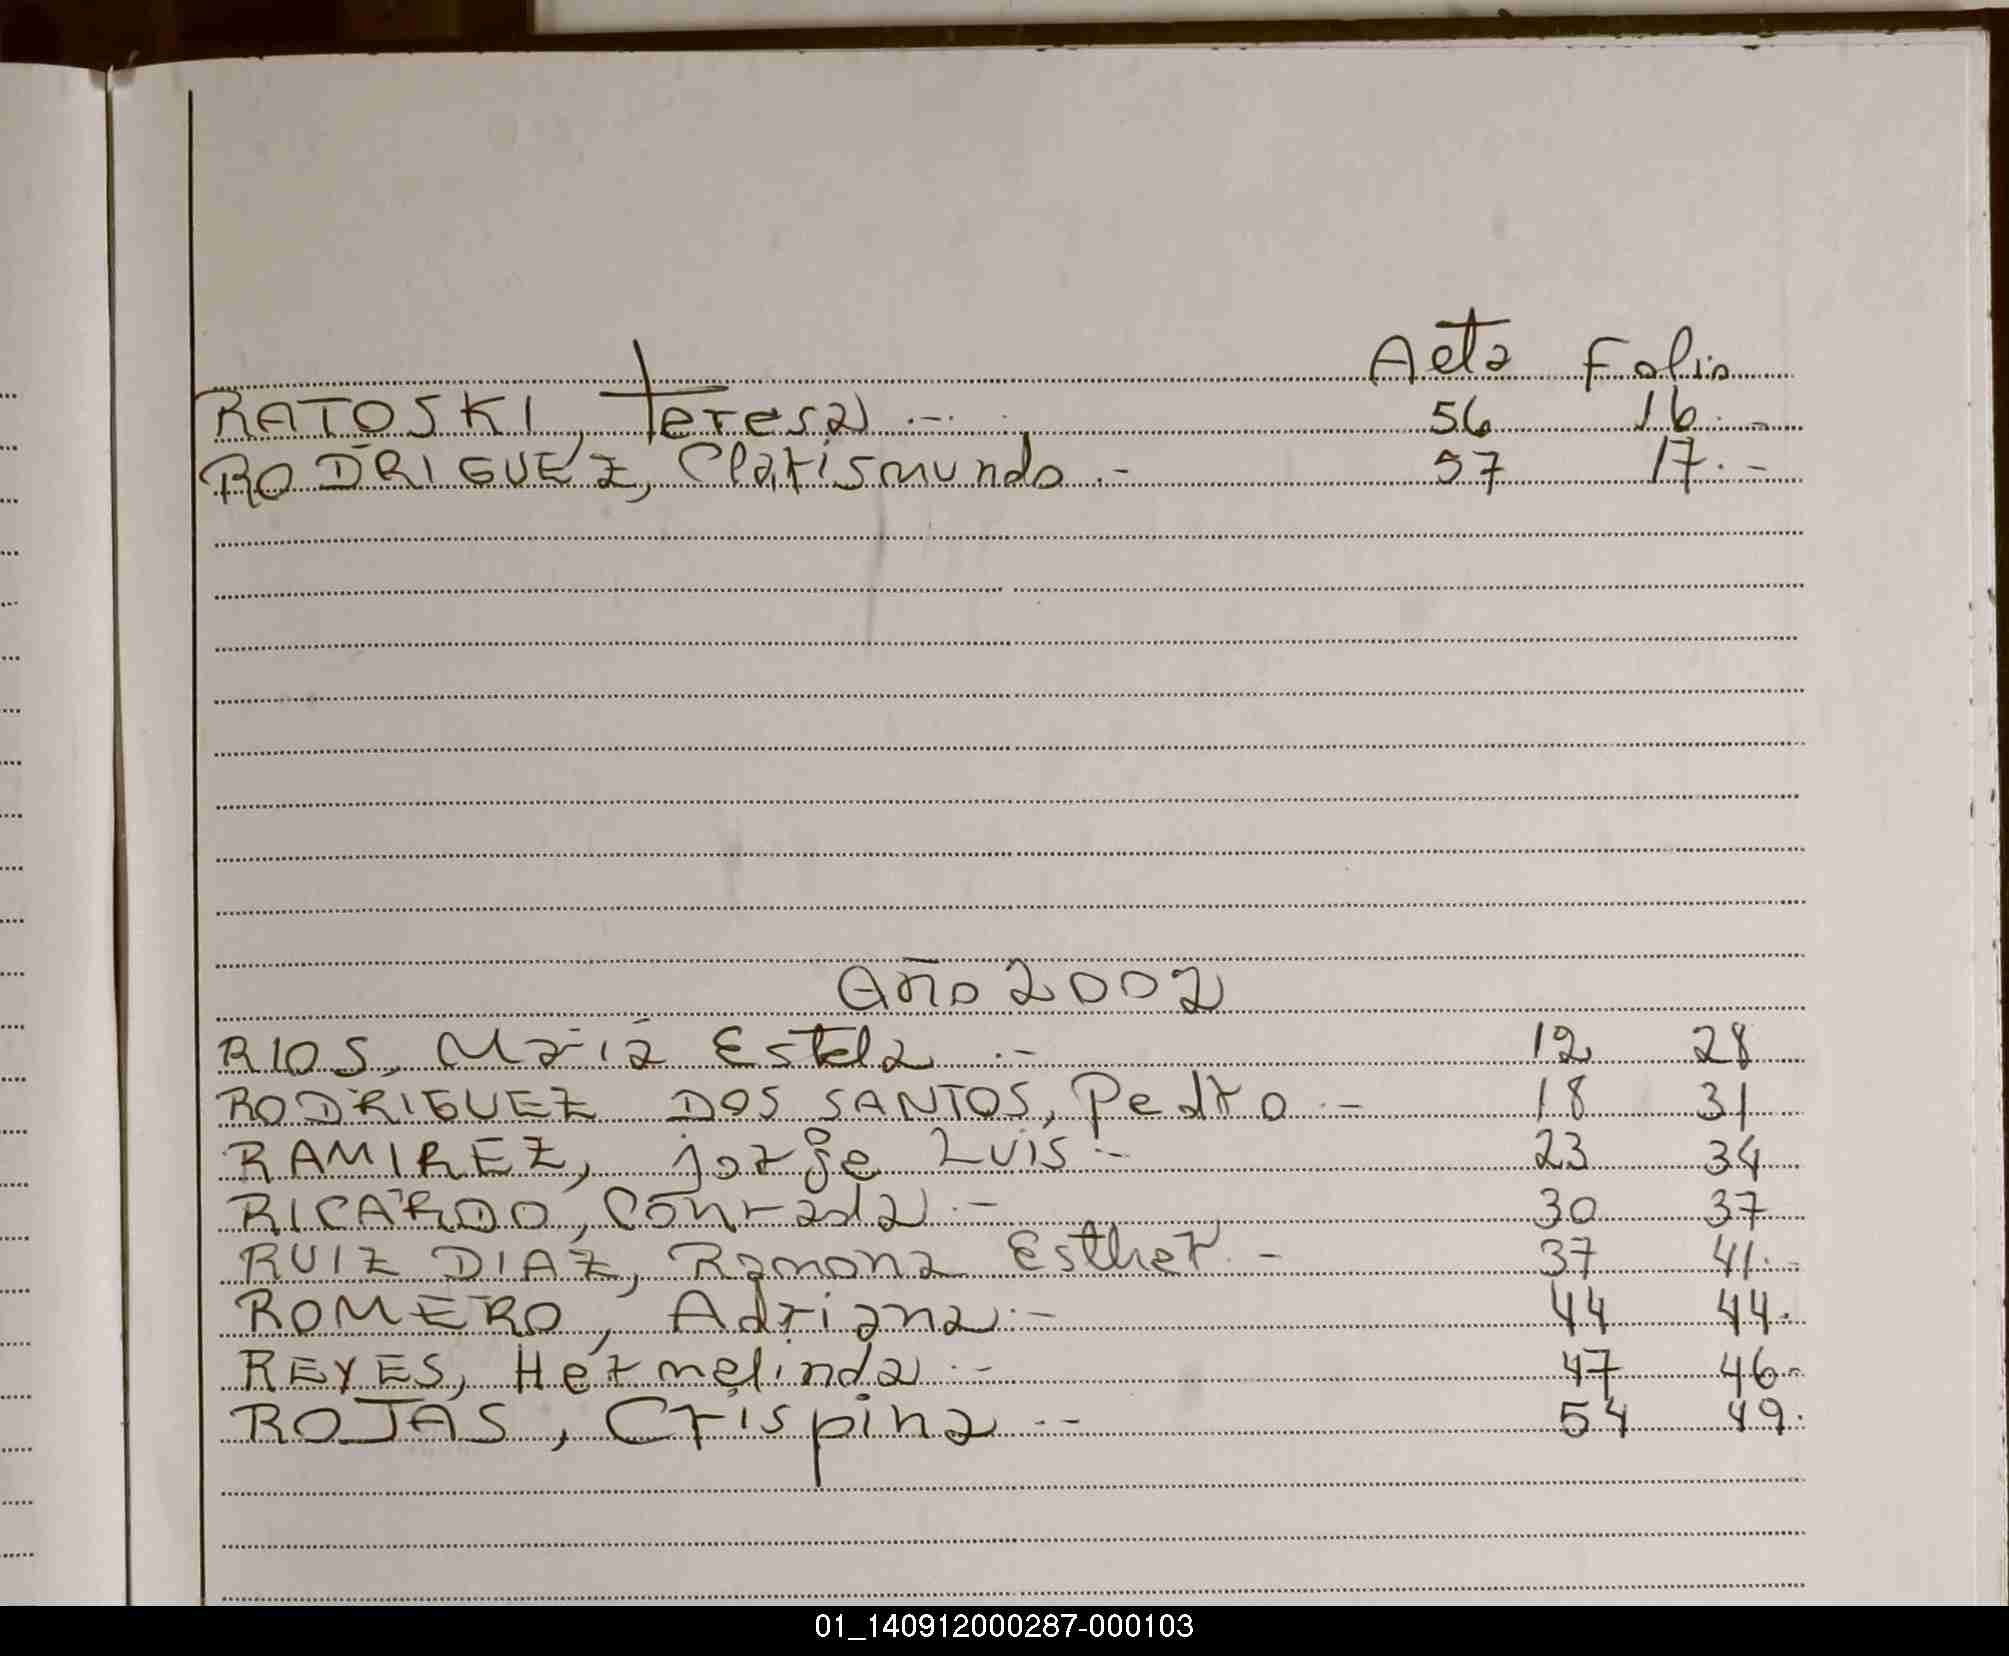 Acta Folio
RATOSKI, Teresa .- 56 16.-
RODRIGUEZ, Clarismundo .- 57 17.-
Año 2002
RIOS, María Estela .- 12 28
RODRIGUEZ DOS SANTOS, Pedro .- 18 31
RAMIREZ, jorge Luis .- 23 34
RICARDO, Conrada .- 30 37
RUIZ DIAZ, Ramona Esther .- 37 41.-
ROMERO, Adriana .- 44 44.
REYES, Hermelinda .- 47 46-
ROJAS, Crispina .- 54 49.
01_140912000287-000103